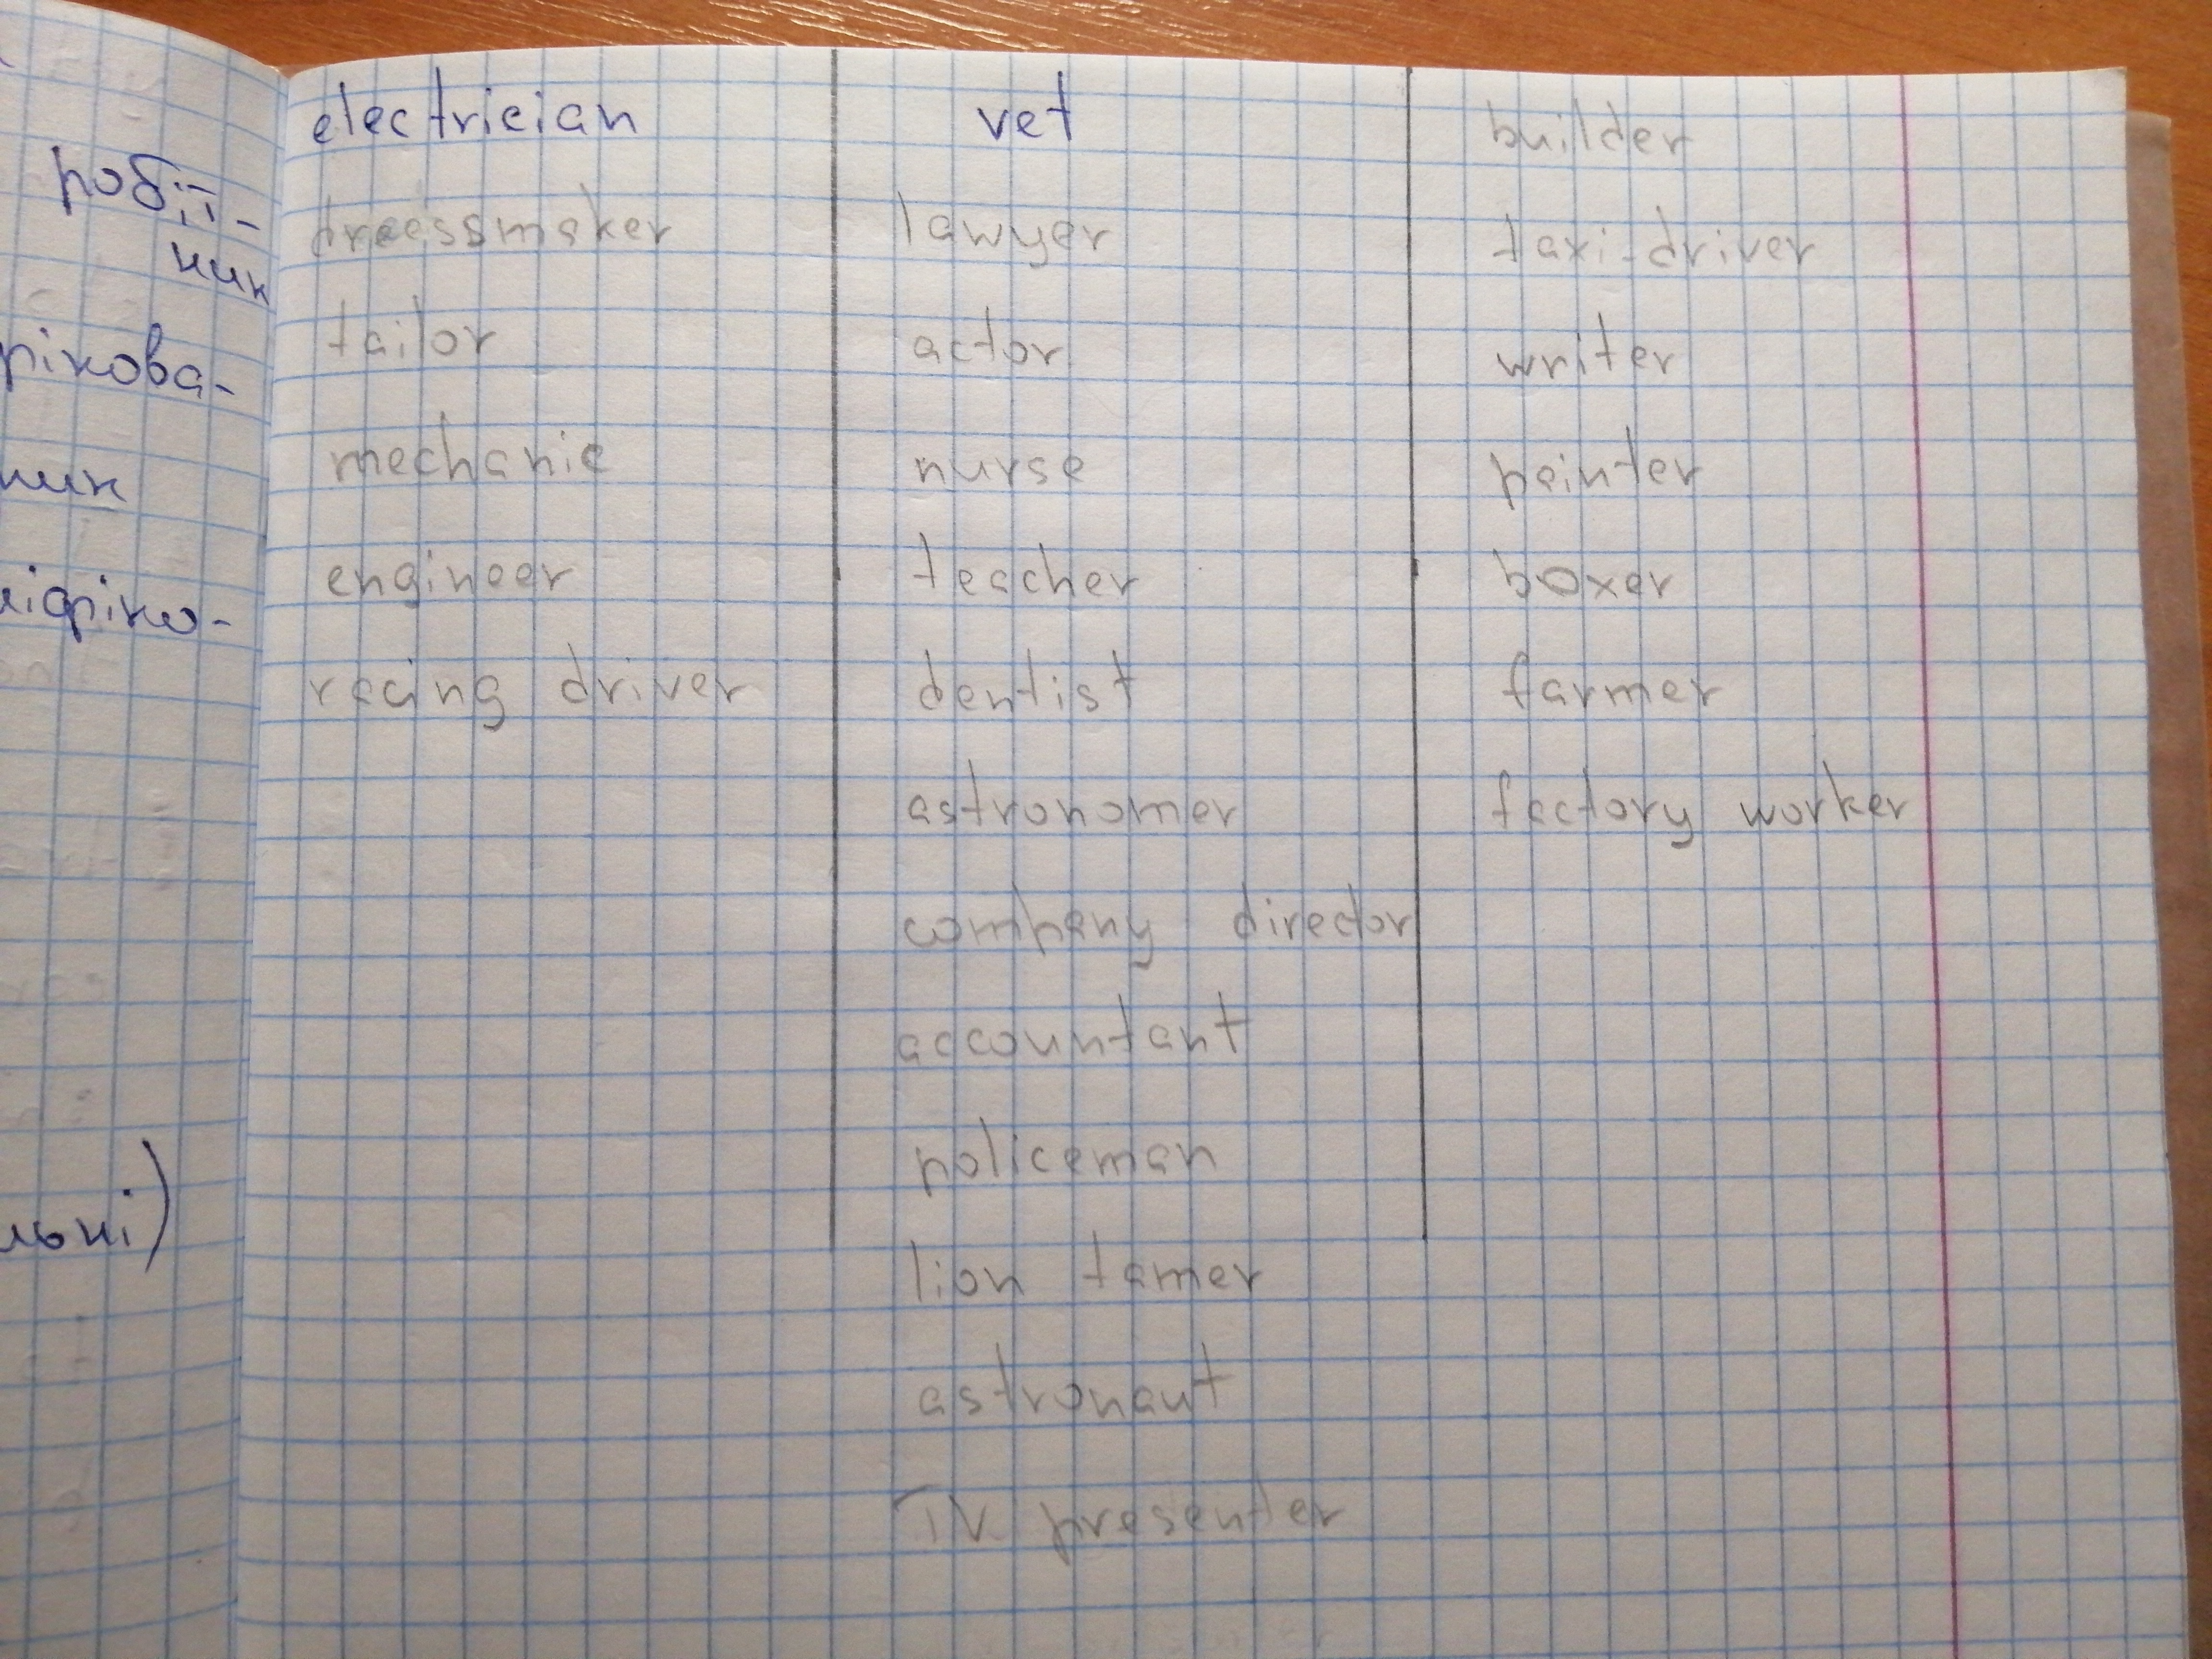 робіт-
ник
рікова-
ник
ліфіко-
льні)
electrician
dressmaker
tailor
mechanic
engineer
racing driver
vet
lawyer
actor
nurse
teacher
dentist
astronomer
company director
accountant
policeman
lion tamer
astronaut
TV presenter
builder
taxi-driver
writer
painter
boxer
farmer
factory worker